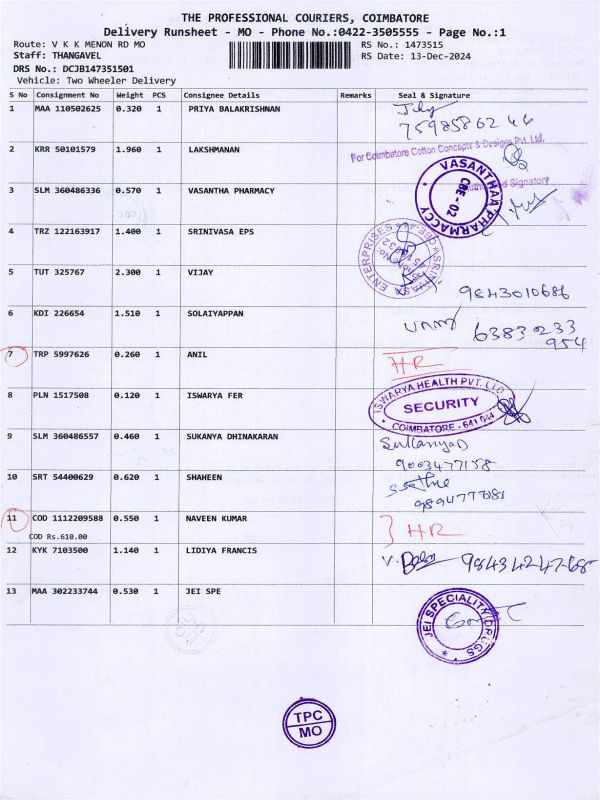 THE PROFESSIONAL COURIERS, COIMBATORE
Delivery Runsheet - MO - Phone No.:0422-3505555 - Page No.:1
Route: V K K MENON RD MO
RS No.: 1473515
Staff: THANGAVEL
RS Date: 13-Dec-2024
DRS No.: DCJB147351501
Vehicle: Two Wheeler Delivery
S No Consignment No Weight PCS Consignee Details Remarks Seal & Signature
1 MAA 110502625 0.320 1 PRIYA BALAKRISHNAN
2 KRR 50101579 1.960 1 LAKSHMANAN
For Coimbatore Cotton Concepts & Designs Pvt. Ltd.
Signatory
3 SLM 360486336 0.570 1 VASANTHA PHARMACY
VASANTHAA PHARMACCY
CBE - 02
4 TRZ 122163917 1.400 1 SRINIVASA EPS
SRINIVASA ENTERPRISES
5 TUT 325767 2.300 1 VIJAY
9843010686
6 KDI 226654 1.510 1 SOLAIYAPPAN
63830233
954
7 TRP 5997626 0.260 1 ANIL
HR
8 PLN 1517508 0.120 1 ISWARYA FER
ISWARYA HEALTH PVT. LTD
SECURITY
COIMBATORE - 641 044
9 SLM 360486557 0.460 1 SUKANYA DHINAKARAN
9003477158
10 SRT 54400629 0.620 1 SHAHEEN
11 COD 1112209588 0.550 1 NAVEEN KUMAR
COD Rs.610.00
HR
12 KYK 7103500 1.140 1 LIDIYA FRANCIS
13 MAA 302233744 0.530 1 JEI SPE
JEI SPECIALITY DRUGS
TPC
MO